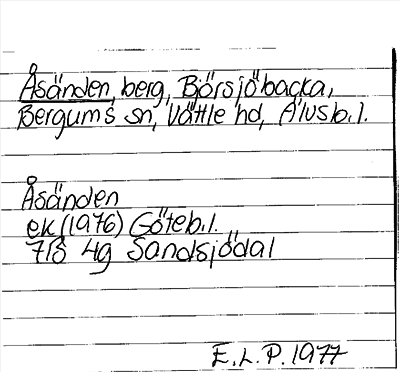 Åsänden, berg, Börsjöbacka,
Bergums sn, Vättle hd, Älvsb.l.
Åsänden
ek (1976) Göteb.l.
7B 4g Sandsjödal
E.L.P. 1977